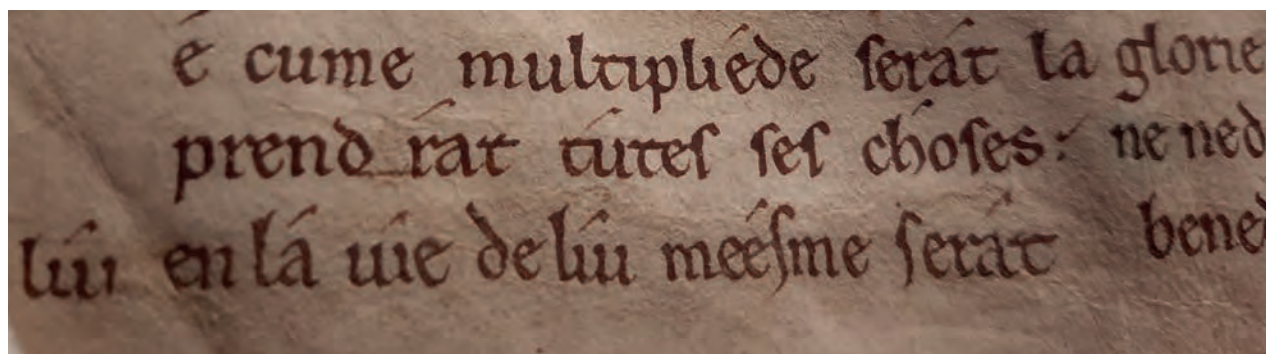 é cume multipliéde serát la glorie
prend rát tútes ses choses: ne ned
liu en lá uie de liu meésme serát bened